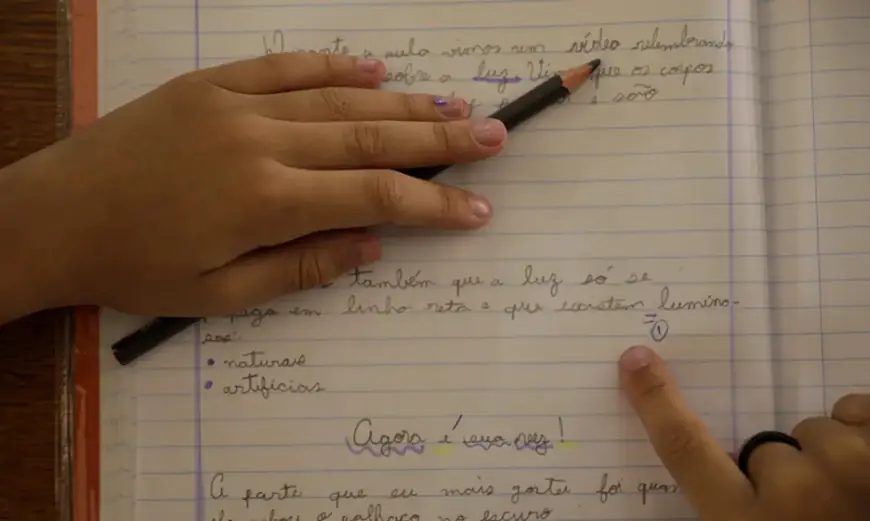 Durante a aula vimos um vídeo relembrando
sobre a luz. que os corpos
e são
também que a luz só se
em linha reta e que existem lumino-
① 
sas:
• naturais
• artificias
Agora é sua vez!
A parte que eu mais gostei foi quan
o palhaço no escuro